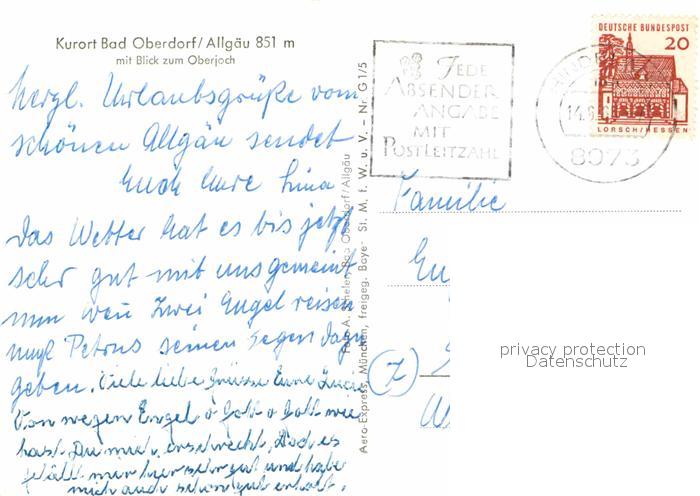 Kurort Bad Oberdorf/Allgäu 851 m
mit Blick zum Oberjoch
herzl. Urlaubsgrüße vom
schönen Allgäu sendet
Euch Eure Lina
Das Wetter hat es bis jetzt
sehr gut mit uns gemeint
nun wenn zwei Engel reisen
muß Petrus seinen Segen dazu
geben. Viele liebe Grüsse Eure
Von wegen Engel o Gott o Gott wie
hast Du mich erschreckt. Doch es
gefällt mir hier sehr gut und habe
mich auch schon gut erholt.
Aero-Express, München, freigeg. Bayer. St. M. f. W. u. V. – Nr. G 1/5
Bad Oberdorf/Allgäu
JEDE
ABSENDER
ANGABE
MIT
POSTLEITZAHL
DEUTSCHE BUNDESPOST
20
LORSCH/HESSEN
14.6
8973
Familie
privacy protection
Datenschutz